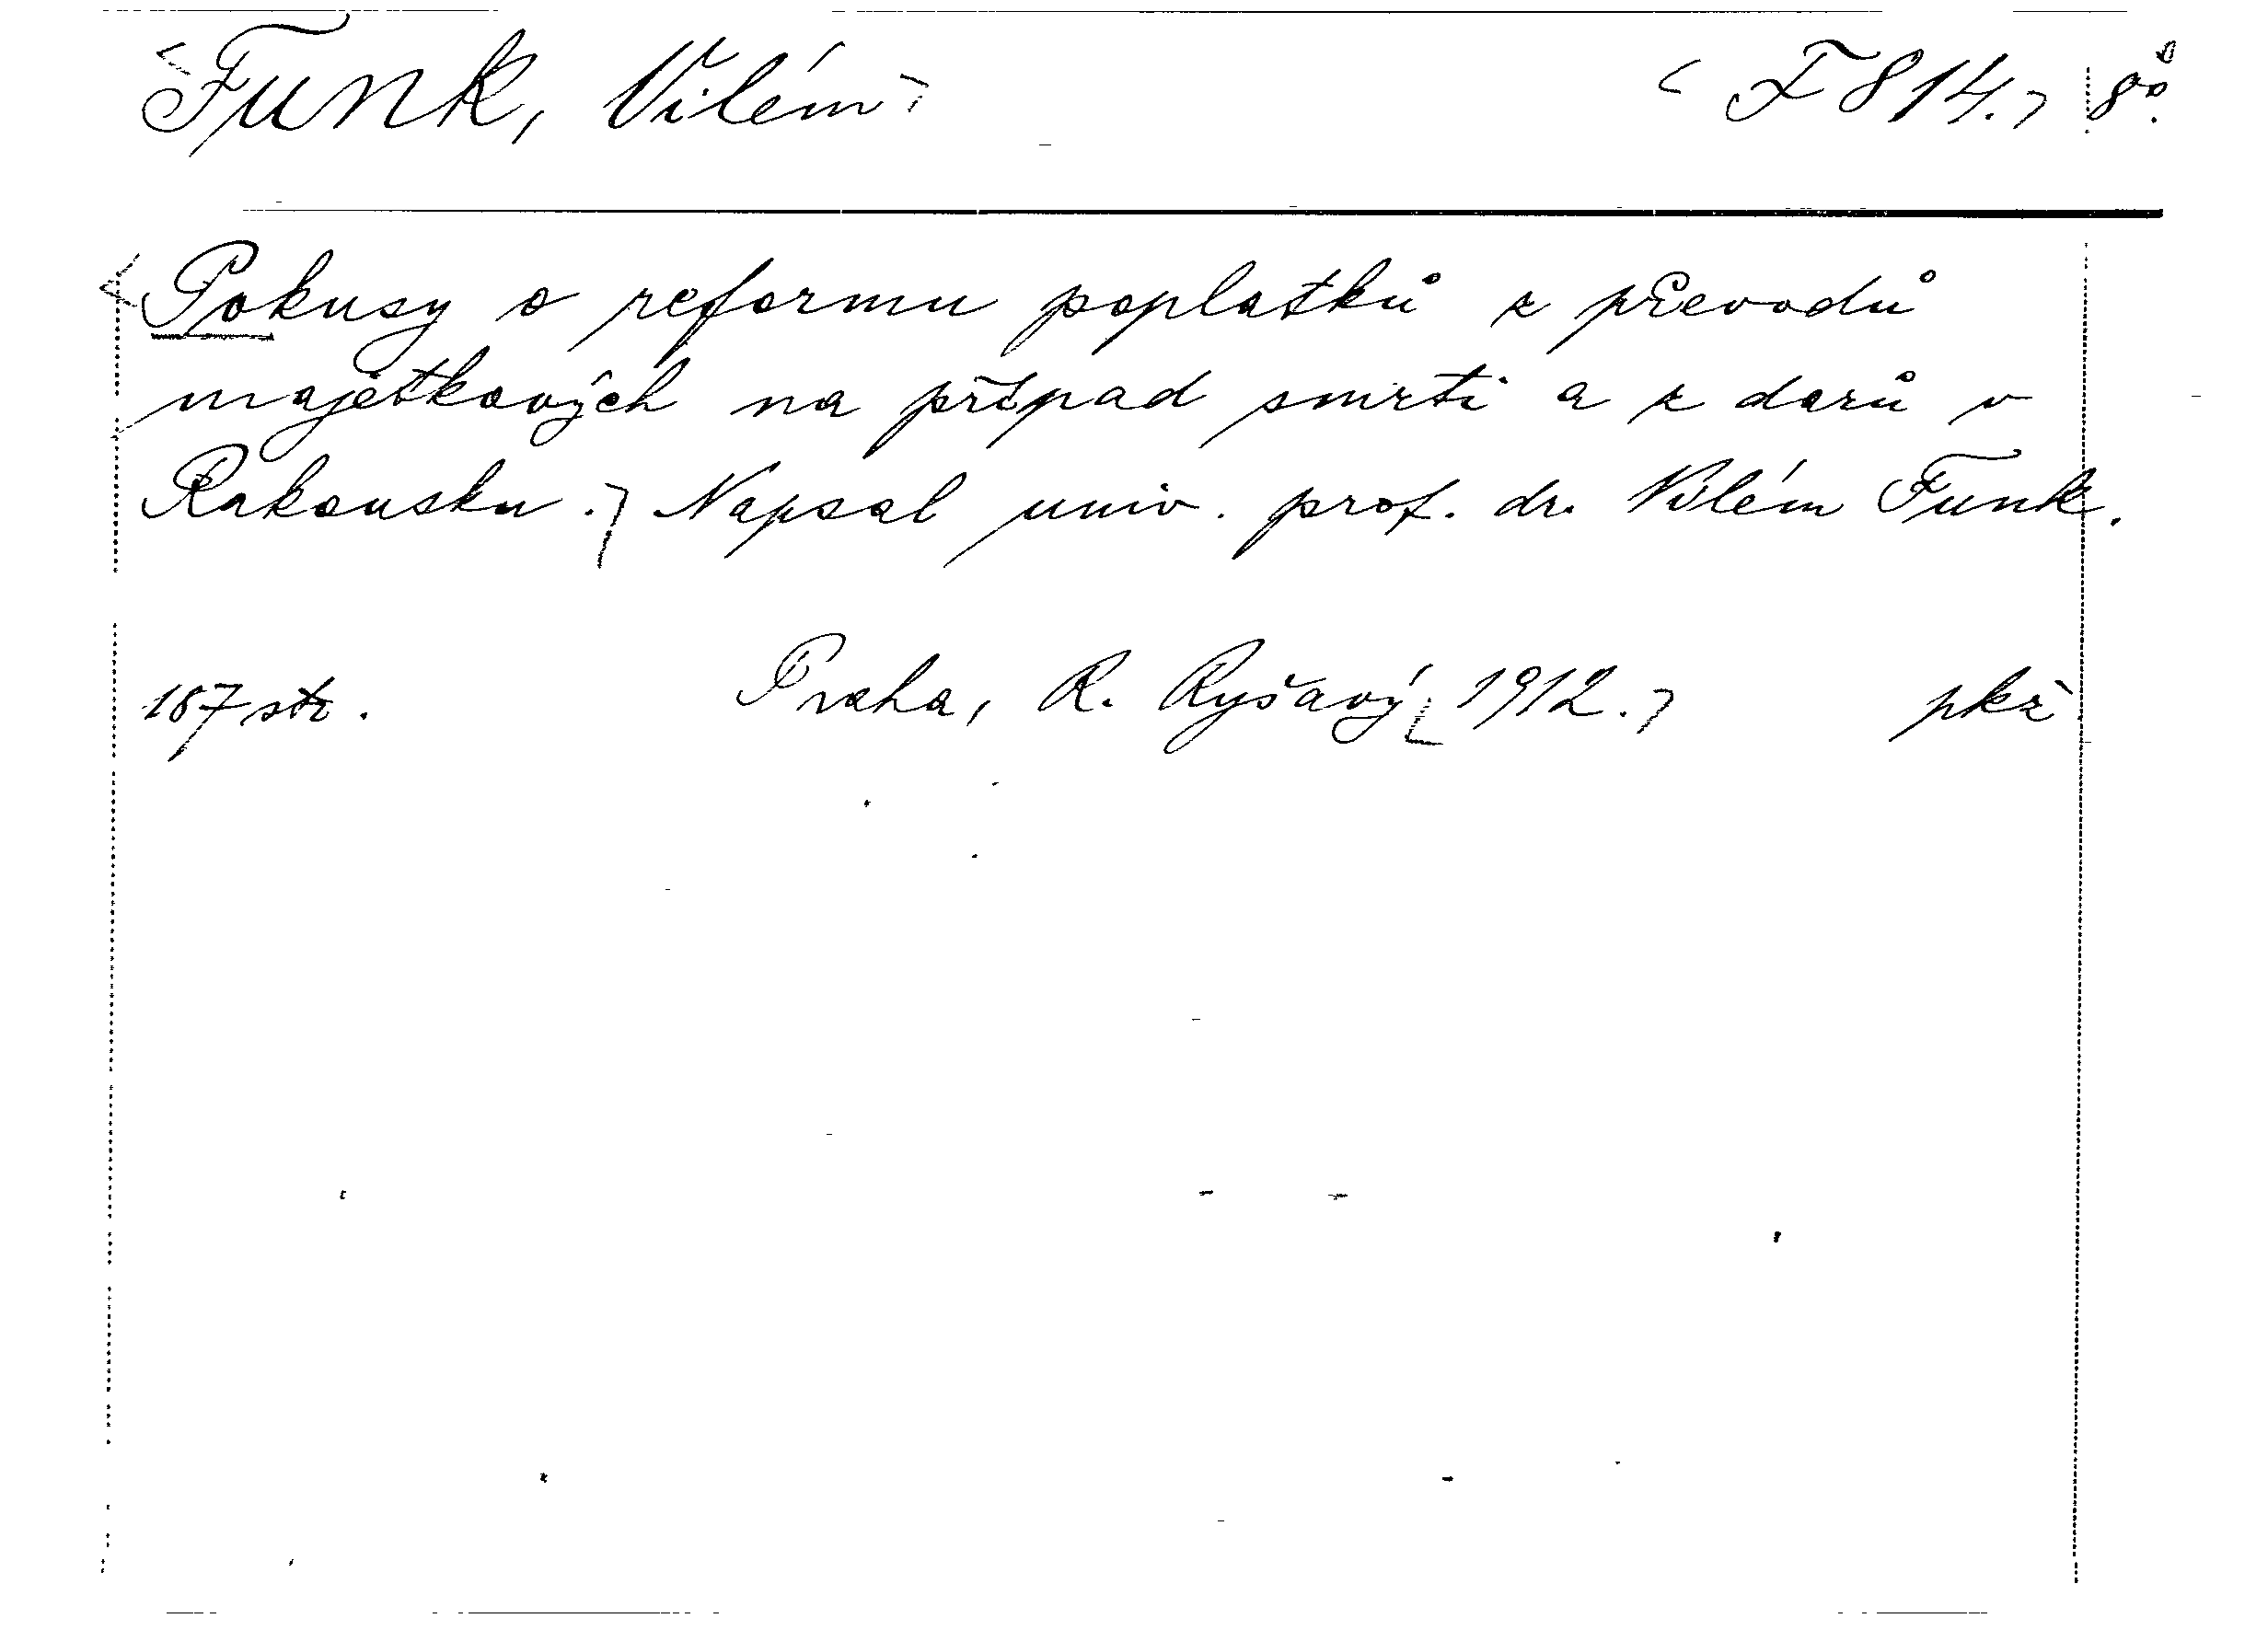 Funk, Vilém
F 814. 8°.
Pokusy o reformu poplatků z převodů
majetkových na případ smrti a z darů v
Rakousku. Napsal univ. prof. dr. Vilém Funk.
187 str. Praha, R. Ryšavý 1912. pkž